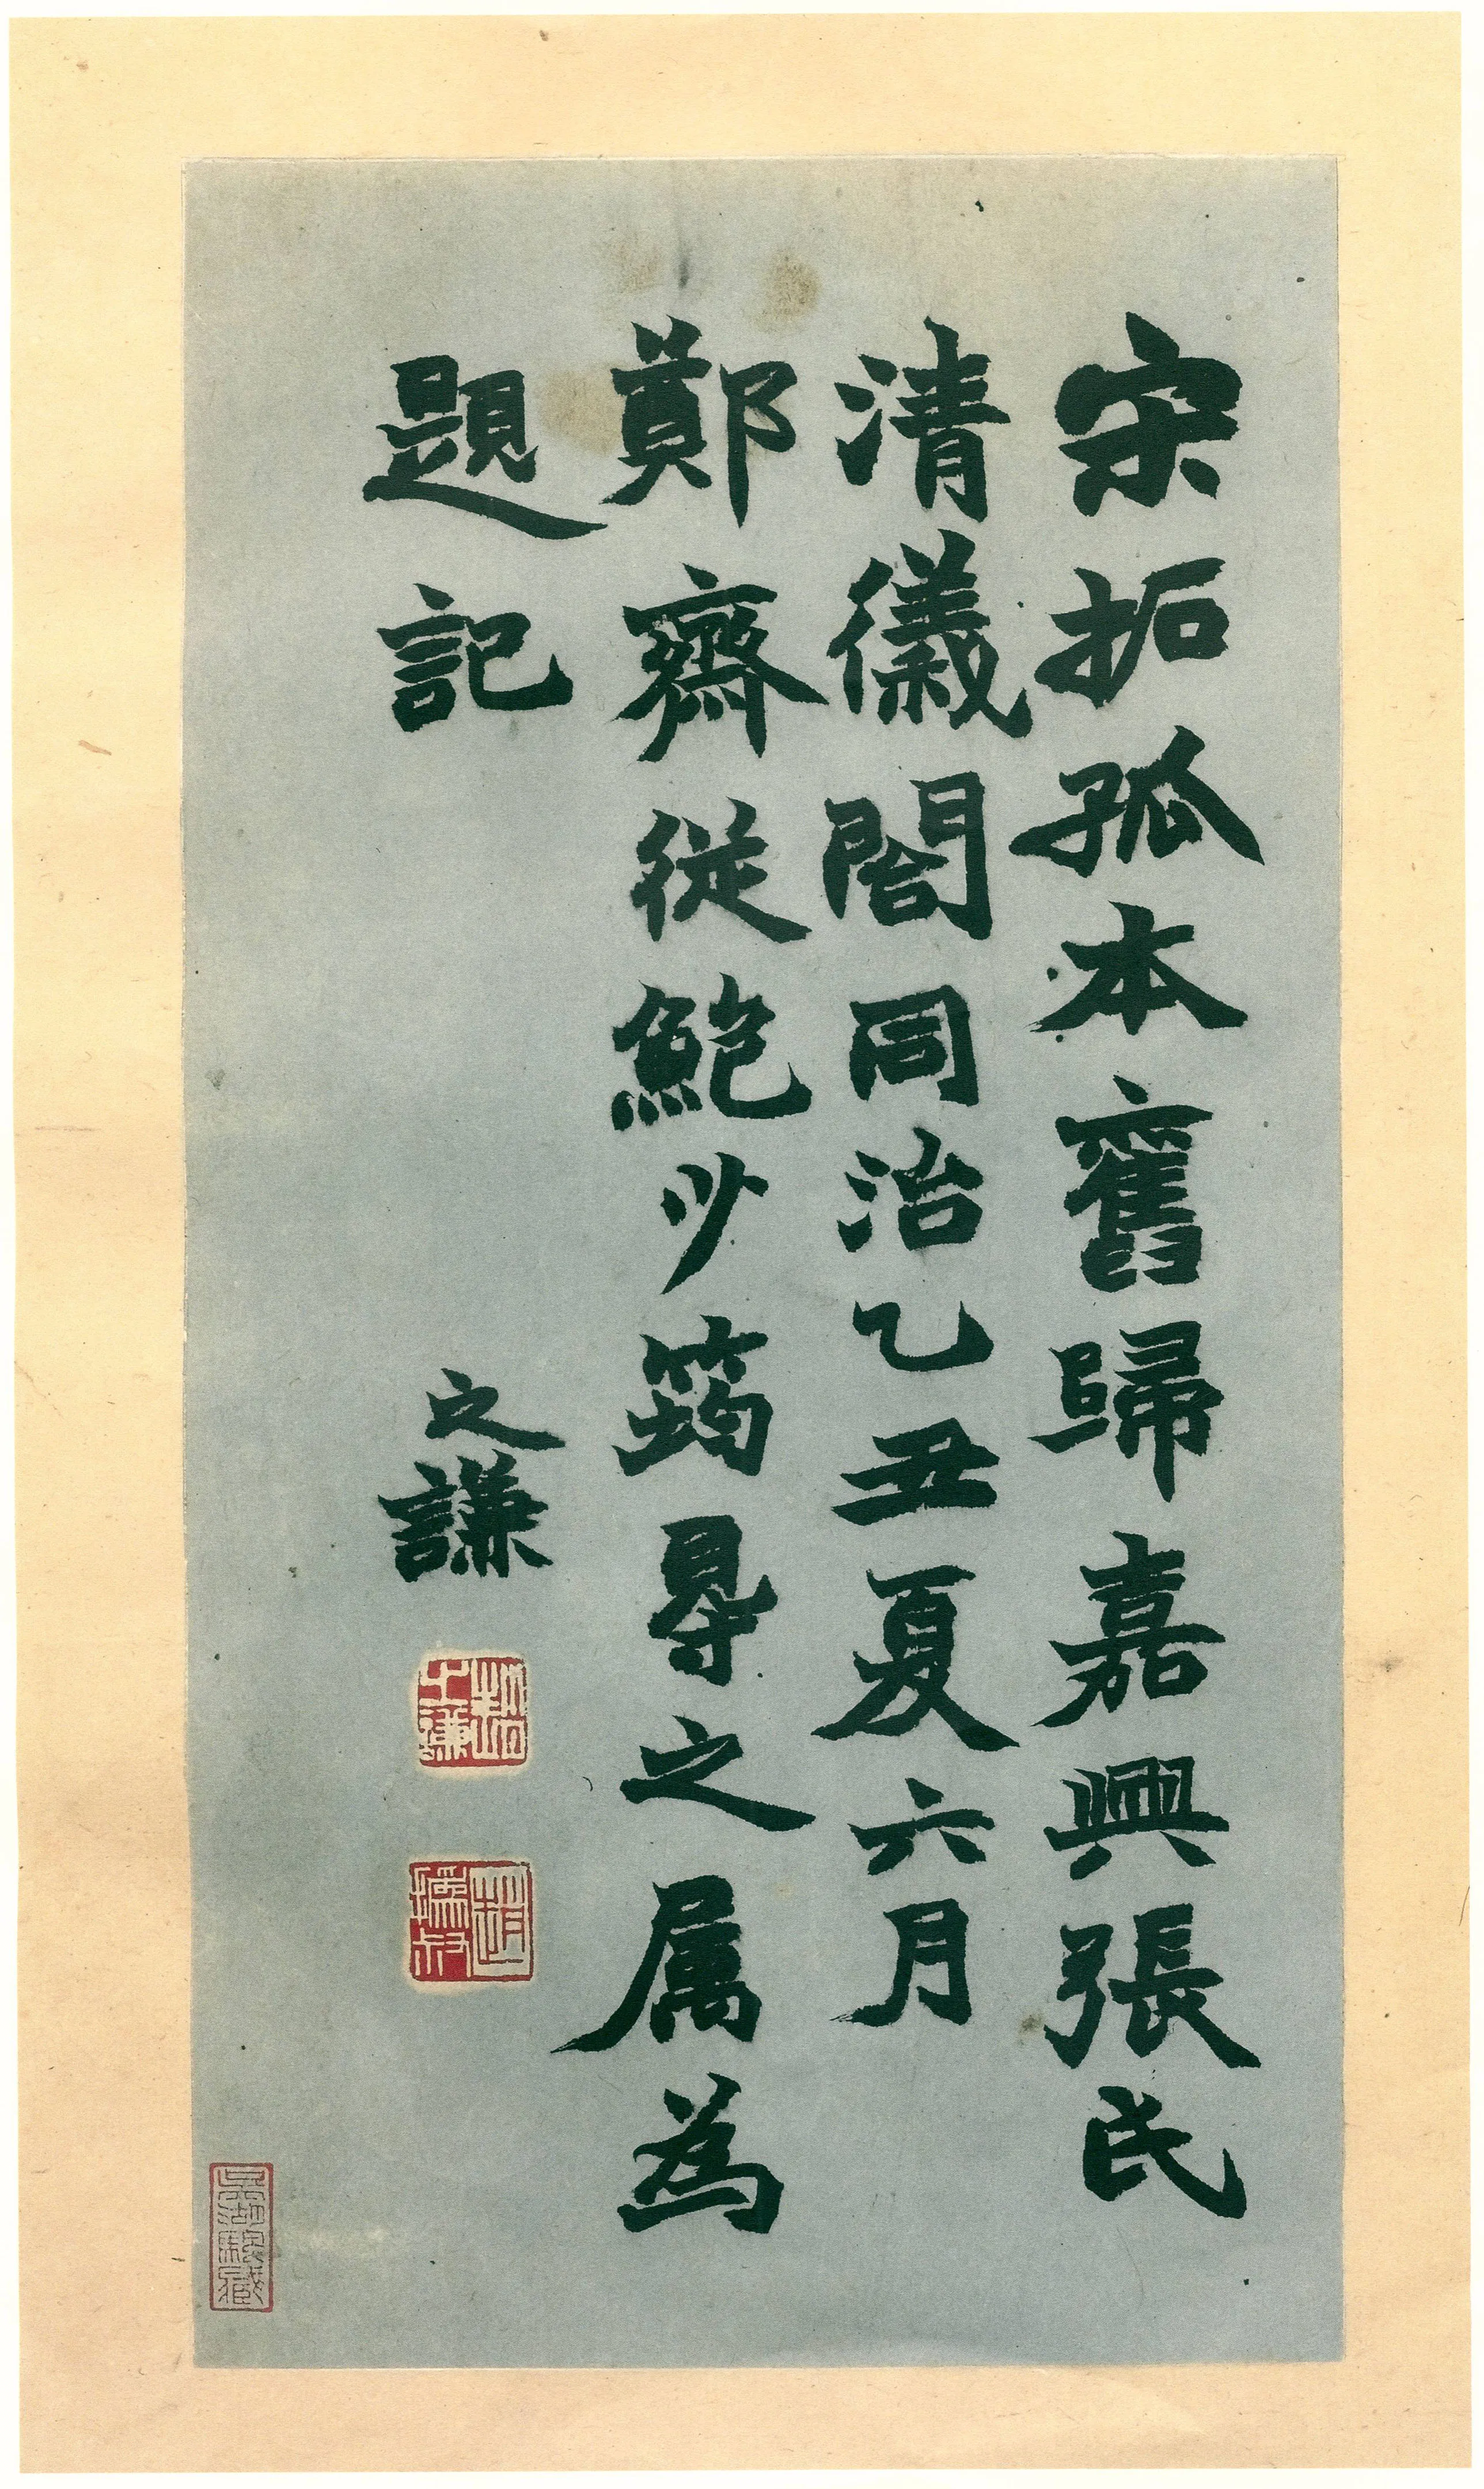 宋拓孤本舊歸嘉興張氏
清儀閣同治乙丑夏六月
鄭齋從鮑少筠㝵之属為
題記
之謙
趙之謙
趙撝叔
吳湖颿藏